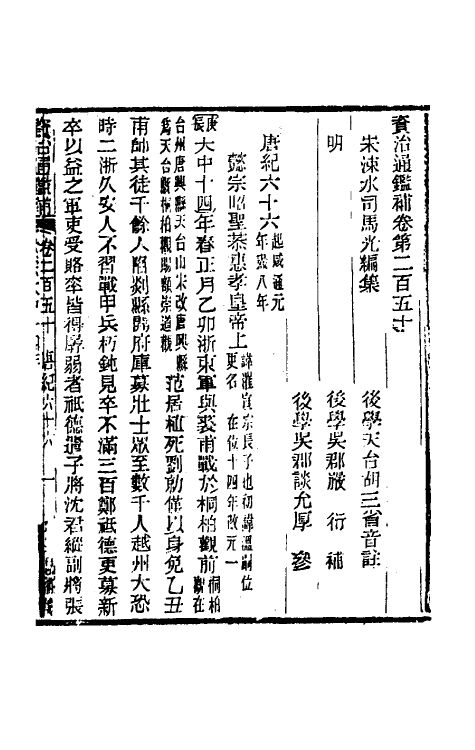 資治通鑑補卷第二百五十
宋涑水司馬光編集
後學天台胡三省音註
明
後學吳郡嚴衍補
後學吳郡談允厚參
唐紀六十六
懿宗昭聖恭惠孝皇帝上
諱漼宣宗長子也初諱溫嗣位
更名 在位十四年改元一
庚辰
大中十四年春正月乙卯浙東軍與裘甫戰於桐柏觀前
桐柏觀在
台州唐興縣天台山宋改唐興縣
爲天台縣桐柏觀賜額崇道觀
范居植死劉勍僅以身免乙丑
甫帥其徒千餘人陷剡縣開府庫募壯士眾至數千人越州大恐
時二浙久安人不習戰甲兵朽鈍見卒不滿三百鄭祗德更募新
卒以益之軍吏受賂率皆得孱弱者祗德遣子將沈君縱副將張
資治通鑑補 卷二百五十 唐紀六十六 一